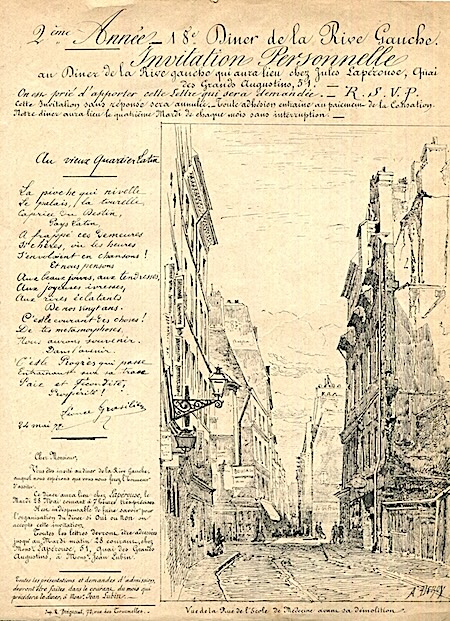 2ème Année — 18e Diner de la Rive Gauche.
Invitation Personnelle
au Diner de la Rive gauche qui aura lieu chez Jules Lapérouse, Quai
des Grands Augustins, 51. —
On est prié d'apporter cette Lettre qui sera demandée. — R. S. V. P.
Cette Invitation sans réponse sera annulée. — Toute adhésion entraine au paiement de la Cotisation.
Notre diner aura lieu le quatrième Mardi de chaque mois sans interruption. —
Au vieux Quartier Latin
La pioche qui nivelle
Le palais, la tourelle
Caprice du Destin,
Pays Latin,
A frappé ces demeures
Si chères, où les heures
S'envolaient en chansons!
Et nous pensons
Aux beaux jours, aux tendresses,
Aux joyeuses ivresses,
Aux rires éclatants
De nos vingt ans.
C'est le courant des choses!
De tes métamorphoses,
Nous aurons souvenir,
Dans l'avenir.
C'est le Progrès qui passe
Entrainant sur sa trace
Paix et Fécondité,
Prospérité!
24 mai
Cher Monsieur,
Vous êtes invité au diner de la Rive Gauche,
auquel nous espérons que vous nous ferez l'honneur
d'assister.
Ce Diner aura lieu chez Lapérouse, le
Mardi 28 Mai courant à 7 heures
Il est indispensable de faire savoir pour
l'organisation du diner si Oui ou Non on
accepte cette invitation.
Toutes les lettres devront être adressées
jusqu'au Mardi matin 28 courant, chez
Monsr Lapérouse, 51, Quai des Grands
Augustins, à Monsr Jean Lubin.
Toutes les présentations et demandes d'admission,
devront être faites dans le courant du mois qui
précédera le diner, à Monsr Jean Lubin.
rue des Tournelles.
Vue de la Rue de l'École de Médecine avant sa démolition.